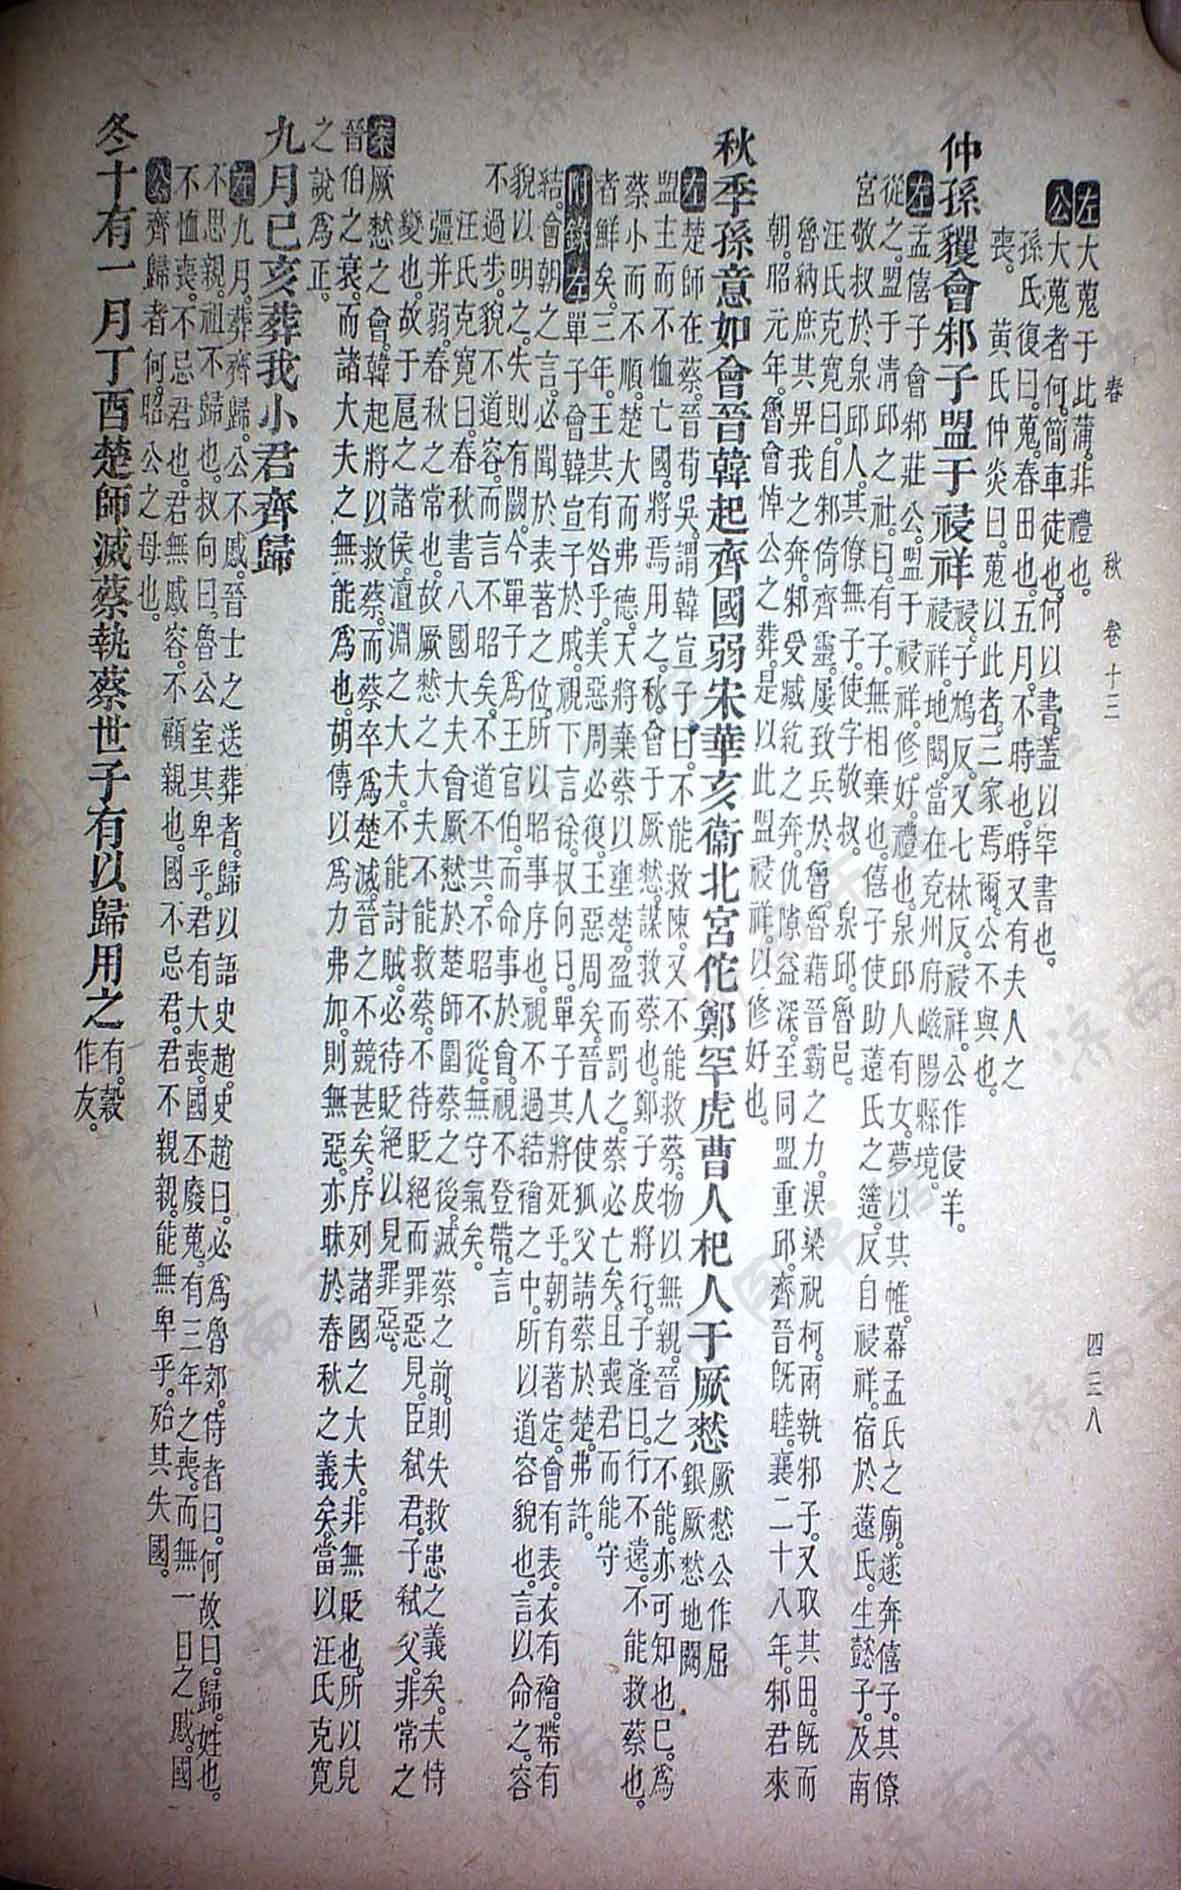 春　秋　卷十三　四三八
左大蒐于比蒲非禮也。
公大蒐者何。簡車徒也。何以書。蓋以罕書也。
孫氏復曰。蒐。春田也。五月。不時也。時又有夫人之
喪。　黃氏仲炎曰。蒐以此者。三家焉爾。公不與也。
仲孫貜會邾子盟于祲祥
祲。子鴆反。又七林反。祲祥。公作侵羊。
祲祥。地闕。當在兗州府嶧陽縣境。
左孟僖子會邾莊公。盟于祲祥。修好。禮也。泉邱人有女。夢以其帷。幕孟氏之廟。遂奔僖子。其僚
從之。盟于清邱之社。曰。有子。無相棄也。僖子使助薳氏之簉。反自祲祥。宿於薳氏。生懿子。及南
宮敬叔於泉邱人。其僚無子。使字敬叔。　泉邱。魯邑。
汪氏克寬曰。自邾倚齊靈。屢致兵於魯。魯藉晉霸之力。溴梁祝柯。兩執邾子。又取其田。既而
魯納庶其畀我之奔。邾受臧紇之奔。仇隙益深。至同盟重邱。齊晉既睦。襄二十八年。邾君來
朝。昭元年。魯會悼公之葬。是以此盟祲祥。以修好也。
秋季孫意如會晉韓起齊國弱宋華亥衞北宮佗鄭罕虎曹人杞人于厥憖
厥憖公作屈
銀厥憖地闕
左楚師在蔡。晉荀吳。謂韓宣子曰。不能救陳。又不能救蔡。物以無親。晉之不能。亦可知也已。爲
盟主而不恤亡國。將焉用之。秋。會于厥憖。謀救蔡也。鄭子皮將行。子產曰。行不遠。不能救蔡也。
蔡小而不順。楚大而弗德。天將棄蔡以壅楚。盈而罰之。蔡必亡矣。且喪君而能守
者鮮矣。三年。王其有咎乎。美惡周必復。王惡周矣。晉人使狐父請蔡於楚。弗許。
附錄左單子會韓宣子於戚。視下言徐。叔向曰。單子其將死乎。朝有著定。會有表。衣有襘。帶有
結。會朝之言。必聞於表著之位。所以昭事序也。視不過結襘之中。所以道容貌也。言以命之。容
貌以明之。失則有闕。今單子爲王官伯。而命事於會。視不登帶。言
不過步。貌不道容。而言不昭矣。不道不共。不昭不從。無守氣矣。
汪氏克寬曰。春秋書八國大夫會厥憖於楚師圍蔡之後。滅蔡之前。則失救患之義矣。夫侍
彊并弱。春秋之常也。故厥憖之大夫不能救蔡。不待貶絕而罪惡見。臣弑君。子弑父。非常之
變也。故于扈之諸侯。澶淵之大夫。不能討賊。必待貶絕以見罪惡。
案厥憖之會。韓起將以救蔡。而蔡卒爲楚滅。晉之不競甚矣。序列諸國之大夫。非無貶也。所以見
晉伯之衰。而諸大夫之無能爲也。胡傳以爲力弗加。則無惡。亦昧於春秋之義矣。當以汪氏克寬
之說爲正。
九月己亥葬我小君齊歸
左九月。葬齊歸。公不慼。晉士之送葬者。歸以語史趙。史趙曰。必爲魯郊。侍者曰。何故。曰。歸。姓也。
不思親。祖不歸也。叔向曰。魯公室其卑乎。君有大喪。國不廢蒐。有三年之喪。而無一日之慼。國
不恤喪。不忌君也。君無慼容。不顧親也。國不忌君。君不親親。能無卑乎。殆其失國。
公齊歸者何。昭公之母也。
冬十有一月丁酉楚師滅蔡執蔡世子有以歸用之
有。穀
作友。